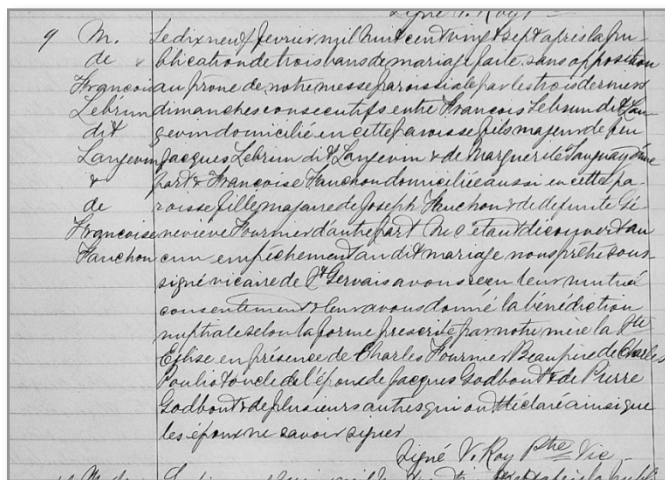 Signé V. Roy
9 M. Le dix neuf fevrier mil huit cent vingt sept après la pu-
de blication de trois bans de mariage faite sans opposition
Francois au prône de notre messe paroissiale par les trois derniers
Lebrun dimanches consecutifs entre Francois Lebrun dit Lan-
dit gevin domicilié en cette paroisse fils majeur de feu
Langevin Jacques Lebrun dit Langevin & de Marguerite Tanguay d'une
& part & Francoise Fauchon domiciliée aussi en cette pa-
de roisse fille majeure de Joseph Fauchon & de defunte Ge-
Francoise nevieve Fournier d'autre part ne s'etant decouvert au
Fauchon cun empêchement au dit mariage nous prêtre sous-
signé vicaire de St Gervais avons recu leur mutuel
consentement & leur avons donné la bénédiction
nuptiale selon la forme prescrite par notre mere la Ste
Eglise en présence de Charles Fournier Beaupère de Charles
Pouliot oncle de l'épouse de Jacques Godbout & de Pierre
Godbout & de plusieurs autres qui ont déclaré ainsi que
les époux ne savoir signer
Signé V. Roy Ptre Vic